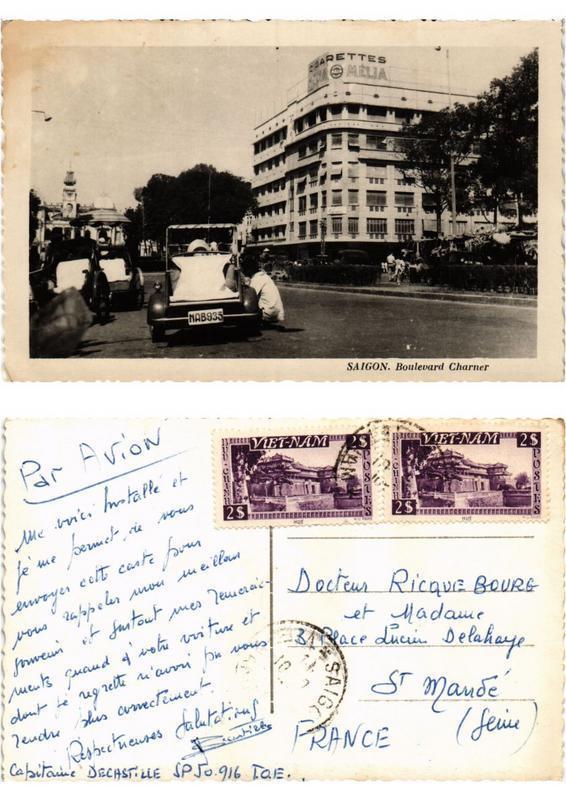 CIGARETTES
MÉLIA
NAB935
SAIGON. Boulevard Charner
Par Avion
Me voici Installé et
je me permet de vous
envoyer cette carte pour
vous rappeler mon meilleur
souvenir et surtout mes remerciements
quand à votre voiture et
dont je regrette n'avoir pu vous
rendre plus correctement.
Respectueuses Salutations
Capitaine DECASTILLE SP 50.916 T.O.E.
VIET-NAM 2$
POSTES
2$
VIET-NAM 2$
POSTES
2$
SAIGO
Docteur RICQUEBOURG
et Madame
3 Place Lucien Delahaye
St Mandé
(Seine)
FRANCE